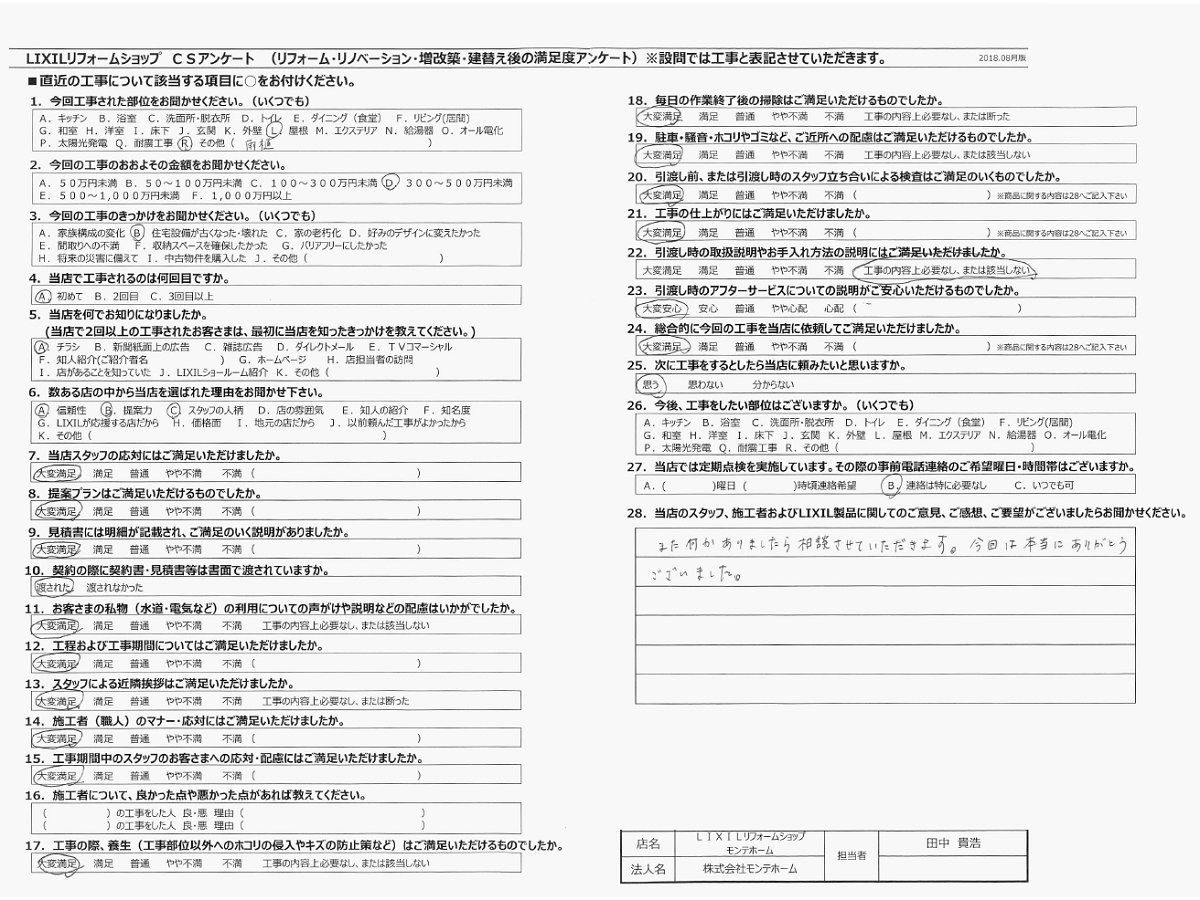 LIXILリフォームショップ CSアンケート (リフォーム・リノベーション・増改築・建替え後の満足度アンケート)※設問では工事と表記させていただきます。 2018.08月版
■直近の工事について該当する項目に○をお付けください。
1. 今回工事された部位をお聞かせください。(いくつでも)
A. キッチン B. 浴室 C. 洗面所・脱衣所 D. トイレ E. ダイニング(食堂) F. リビング(居間)
G. 和室 H. 洋室 I. 床下 J. 玄関 K. 外壁 L. 屋根 M. エクステリア N. 給湯器 O. オール電化
P. 太陽光発電 Q. 耐震工事 R. その他( 雨樋 )
2. 今回の工事のおおよその金額をお聞かせください。
A. 50万円未満 B. 50~100万円未満 C. 100~300万円未満 D. 300~500万円未満
E. 500~1,000万円未満 F. 1,000万円以上
3. 今回の工事のきっかけをお聞かせください。(いくつでも)
A. 家族構成の変化 B. 住宅設備が古くなった・壊れた C. 家の老朽化 D. 好みのデザインに変えたかった
E. 間取りへの不満 F. 収納スペースを確保したかった G. バリアフリーにしたかった
H. 将来の災害に備えて I. 中古物件を購入した J. その他( )
4. 当店で工事されるのは何回目ですか。
A. 初めて B. 2回目 C. 3回目以上
5. 当店を何でお知りになりましたか。
(当店で2回以上の工事されたお客さまは、最初に当店を知ったきっかけを教えてください。)
A. チラシ B. 新聞紙面上の広告 C. 雑誌広告 D. ダイレクトメール E. TVコマーシャル
F. 知人紹介(ご紹介者名 ) G. ホームページ H. 店担当者の訪問
I. 店があることを知っていた J. LIXILショールーム紹介 K. その他( )
6. 数ある店の中から当店を選ばれた理由をお聞かせ下さい。
A. 信頼性 B. 提案力 C. スタッフの人柄 D. 店の雰囲気 E. 知人の紹介 F. 知名度
G. LIXILが応援する店だから H. 価格面 I. 地元の店だから J. 以前頼んだ工事がよかったから
K. その他( )
7. 当店スタッフの応対にはご満足いただけましたか。
大変満足 満足 普通 やや不満 不満 ( )
8. 提案プランはご満足いただけるものでしたか。
大変満足 満足 普通 やや不満 不満 ( )
9. 見積書には明細が記載され、ご満足のいく説明がありましたか。
大変満足 満足 普通 やや不満 不満 ( )
10. 契約の際に契約書・見積書等は書面で渡されていますか。
渡された 渡されなかった
11. お客さまの私物(水道・電気など)の利用についての声がけや説明などの配慮はいかがでしたか。
大変満足 満足 普通 やや不満 不満 工事の内容上必要なし、または該当しない
12. 工程および工事期間についてはご満足いただけましたか。
大変満足 満足 普通 やや不満 不満 ( )
13. スタッフによる近隣挨拶はご満足いただけましたか。
大変満足 満足 普通 やや不満 不満 工事の内容上必要なし、または断った
14. 施工者(職人)のマナー・応対にはご満足いただけましたか。
大変満足 満足 普通 やや不満 不満 ( )
15. 工事期間中のスタッフのお客さまへの応対・配慮にはご満足いただけましたか。
大変満足 満足 普通 やや不満 不満 ( )
16. 施工者について、良かった点や悪かった点があれば教えてください。
( )の工事をした人 良・悪 理由( )
( )の工事をした人 良・悪 理由( )
17. 工事の際、養生(工事部位以外へのホコリの侵入やキズの防止策など)はご満足いただけるものでしたか。
大変満足 満足 普通 やや不満 不満 工事の内容上必要なし、または該当しない
18. 毎日の作業終了後の掃除はご満足いただけるものでしたか。
大変満足 満足 普通 やや不満 不満 工事の内容上必要なし、または断った
19. 駐車・騒音・ホコリやゴミなど、ご近所への配慮はご満足いただけるものでしたか。
大変満足 満足 普通 やや不満 不満 工事の内容上必要なし、または該当しない
20. 引渡し前、または引渡し時のスタッフ立ち合いによる検査はご満足のいくものでしたか。
大変満足 満足 普通 やや不満 不満 ( ) ※商品に関する内容は28へご記入下さい
21. 工事の仕上がりにはご満足いただけましたか。
大変満足 満足 普通 やや不満 不満 ( ) ※商品に関する内容は28へご記入下さい
22. 引渡し時の取扱説明やお手入れ方法の説明にはご満足いただけましたか。
大変満足 満足 普通 やや不満 不満 工事の内容上必要なし、または該当しない
23. 引渡し時のアフターサービスについての説明がご安心いただけるものでしたか。
大変安心 安心 普通 やや心配 心配 ( )
24. 総合的に今回の工事を当店に依頼してご満足いただけましたか。
大変満足 満足 普通 やや不満 不満 ( ) ※商品に関する内容は28へご記入下さい
25. 次に工事をするとしたら当店に頼みたいと思いますか。
思う 思わない 分からない
26. 今後、工事をしたい部位はございますか。(いくつでも)
A. キッチン B. 浴室 C. 洗面所・脱衣所 D. トイレ E. ダイニング(食堂) F. リビング(居間)
G. 和室 H. 洋室 I. 床下 J. 玄関 K. 外壁 L. 屋根 M. エクステリア N. 給湯器 O. オール電化
P. 太陽光発電 Q. 耐震工事 R. その他( )
27. 当店では定期点検を実施しています。その際の事前電話連絡のご希望曜日・時間帯はございますか。
A. ( )曜日 ( )時頃連絡希望 B. 連絡は特に必要なし C. いつでも可
28. 当店のスタッフ、施工者およびLIXIL製品に関してのご意見、ご感想、ご要望がございましたらお聞かせください。
また何かありましたら相談させていただきます。今回は本当にありがとう
ございました。
店名 LIXILリフォームショップ モンテホーム 担当者 田中 貴浩
法人名 株式会社モンテホーム